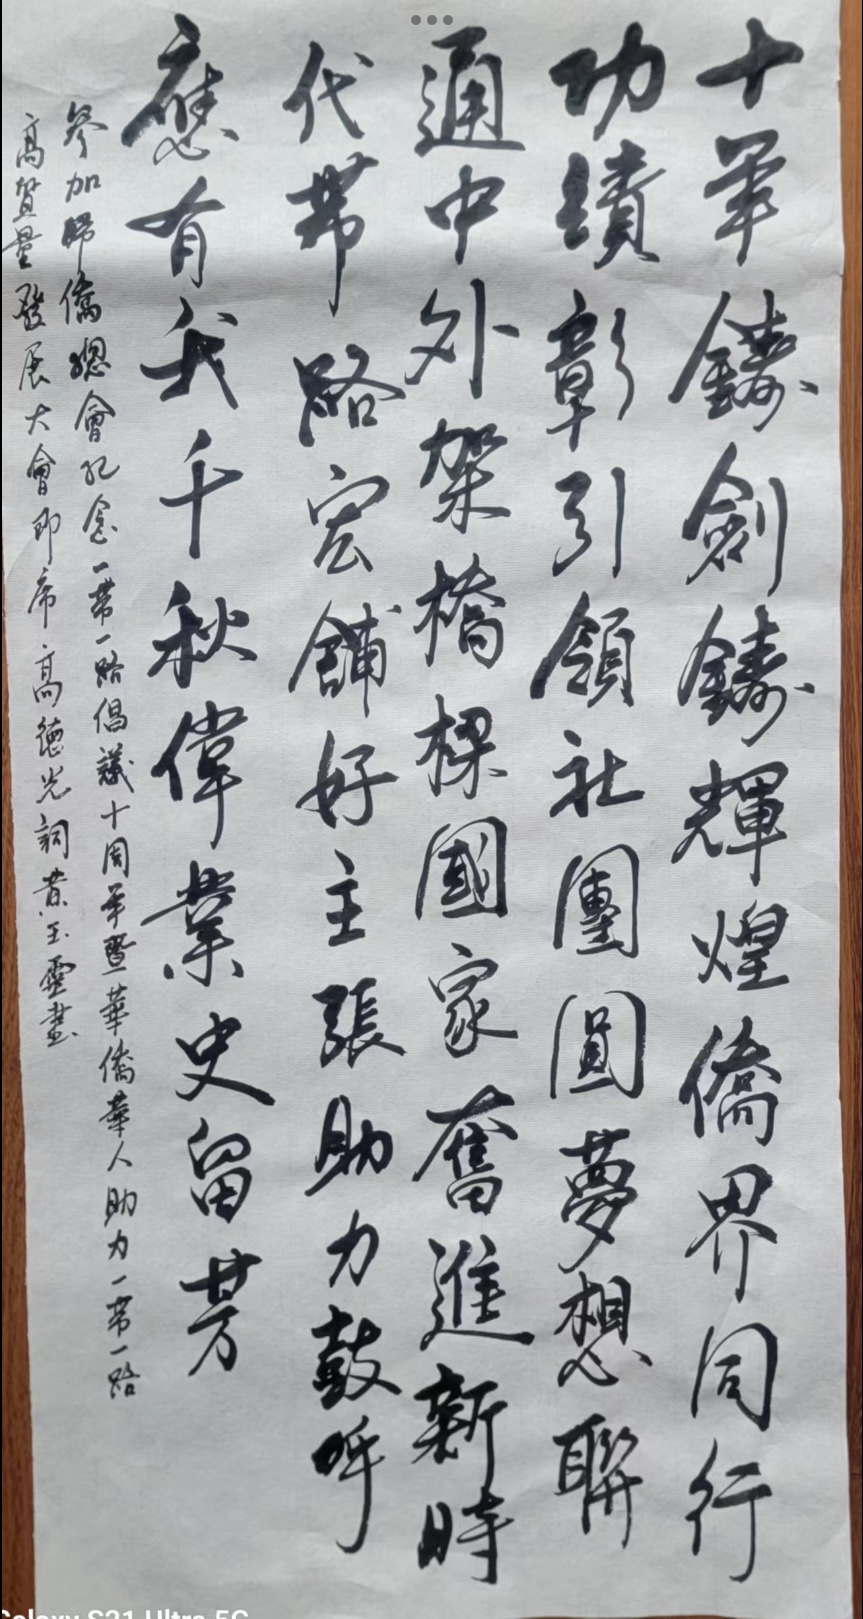 十年鑄劍鑄輝煌僑界同行
功績彰引領社團圓夢想聯
通中外架橋樑國家奮進新時
代帶路宏鋪好主張助力鼓呼
應有我千秋偉業史留芳
參加歸僑總會紀念一帶一路倡議十周年暨華僑華人助力一帶一路
高質量發展大會即席高德光詞黃玉靈書
Galaxy S21 Ultra 5G